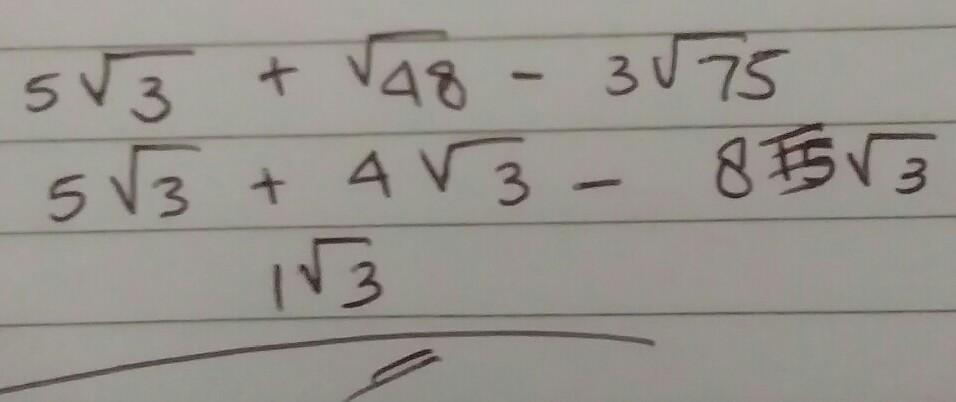 5√3 + √48 - 3√75
5√3 + 4√3 - 8√3
1√3